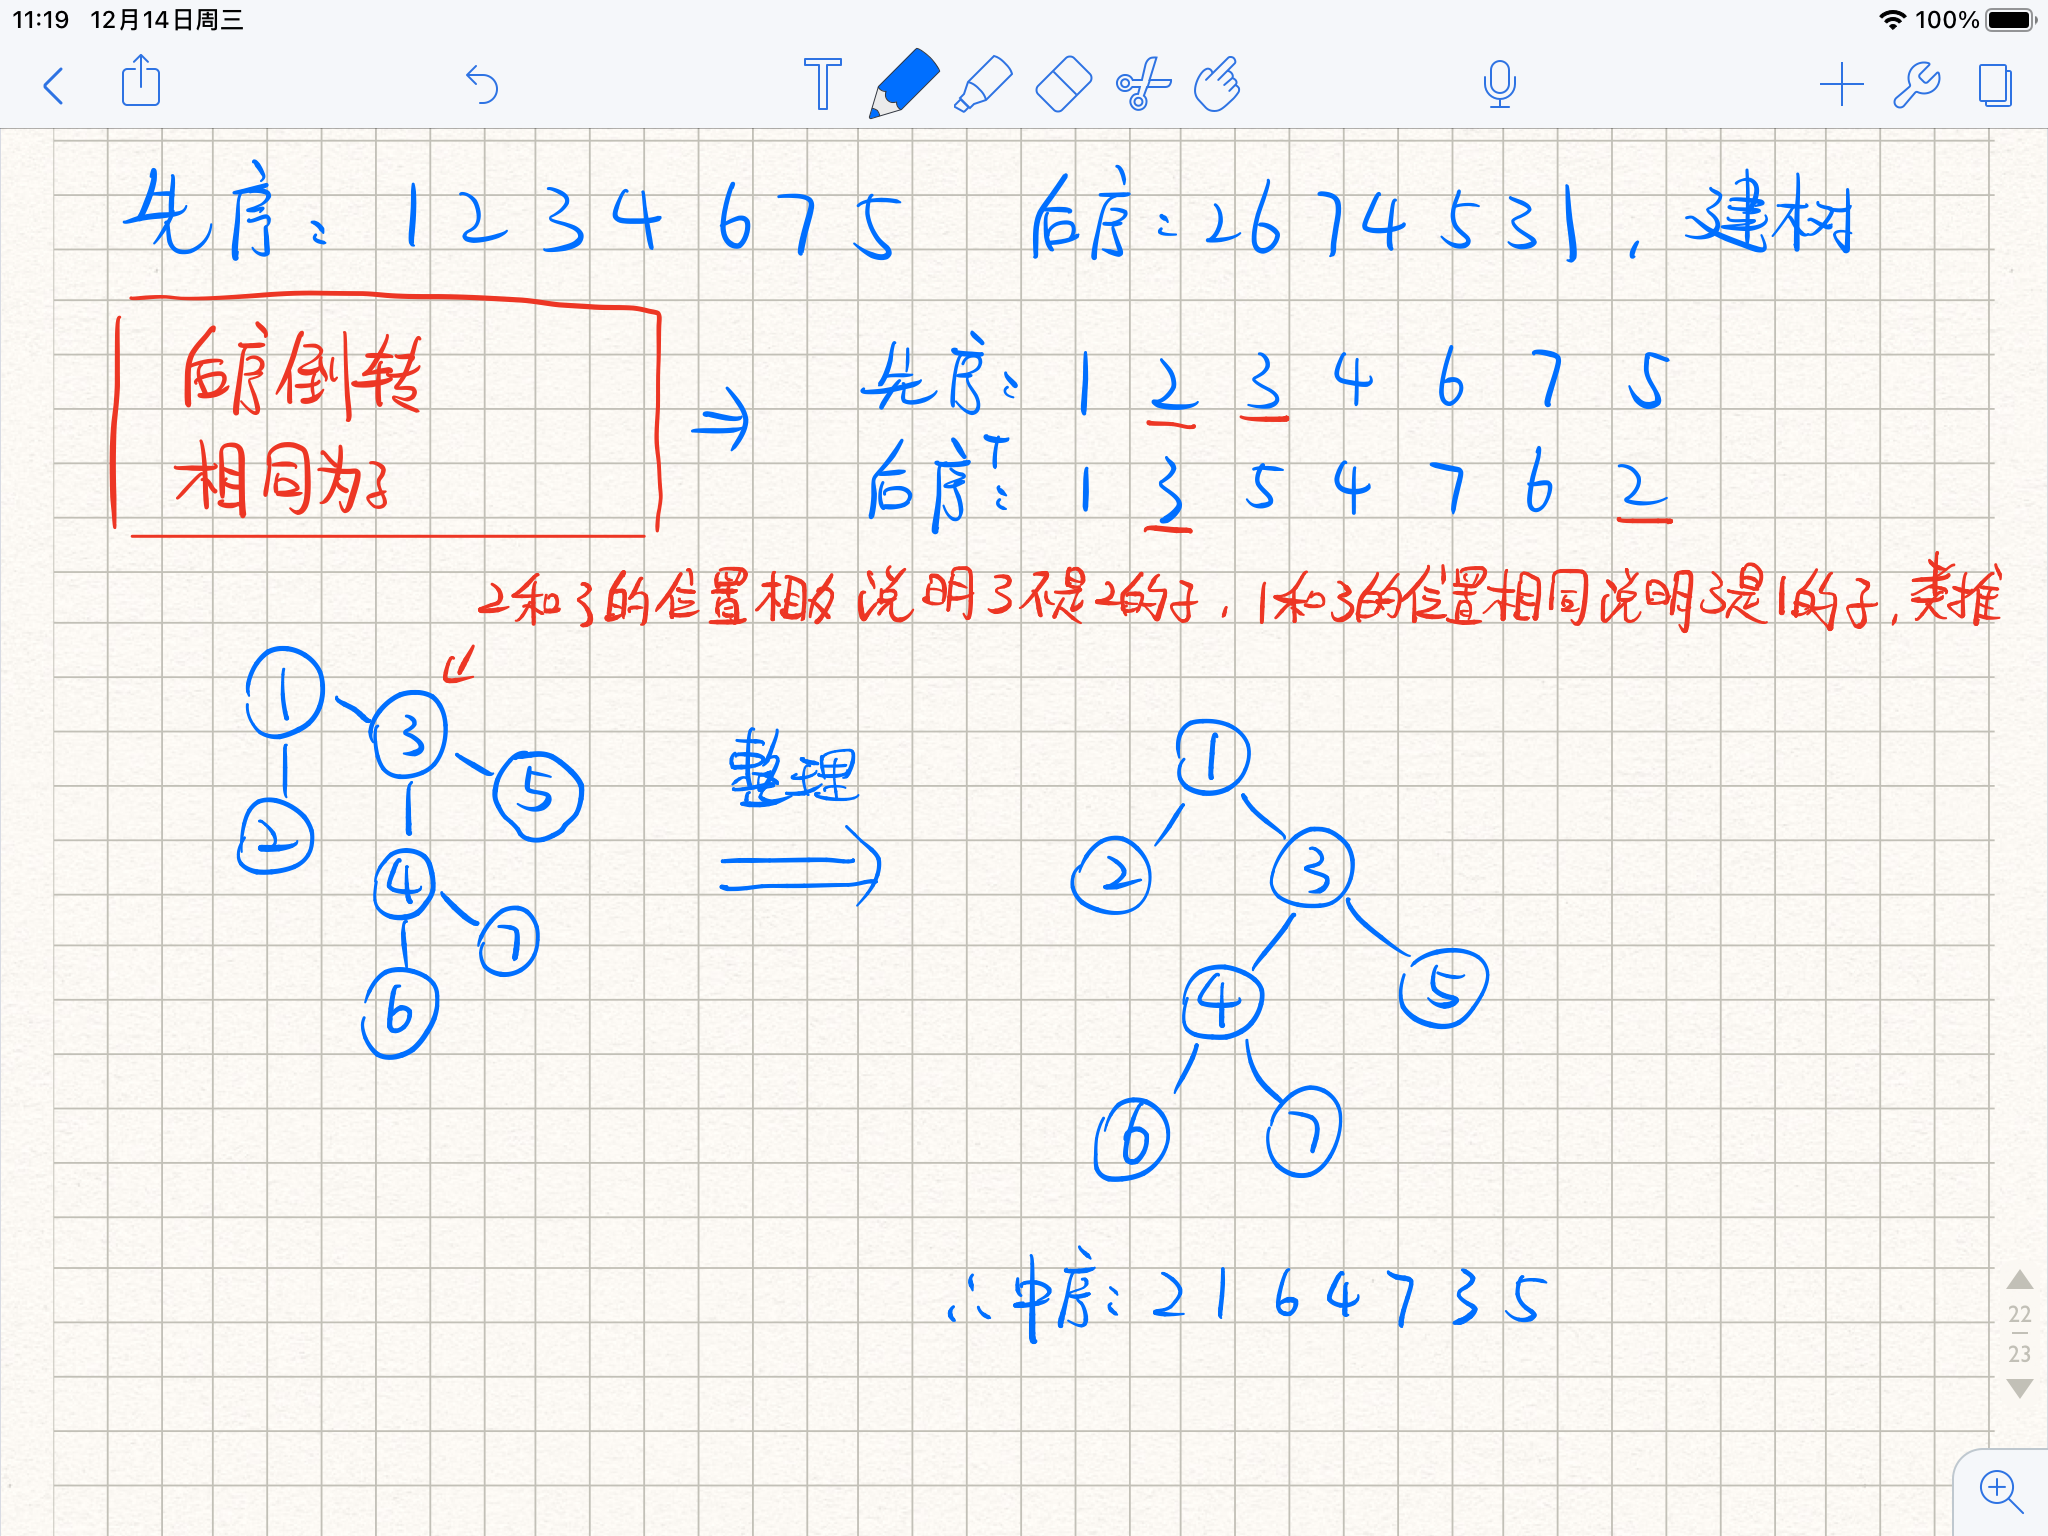 11:19 12月14日周三 100%
T
先序: 1 2 3 4 6 7 5 后序: 2 6 7 4 5 3 1, 建树
后序倒转
相同为子
⇒
先序: 1 2 3 4 6 7 5
后序ᵀ: 1 3 5 4 7 6 2
2和3的位置相反说明3不是2的子, 1和3的位置相同说明3是1的子, 类推
1
3
5
2
4
7
6
整理
1
2
3
4
5
6
7
∴中序: 2 1 6 4 7 3 5
22
23